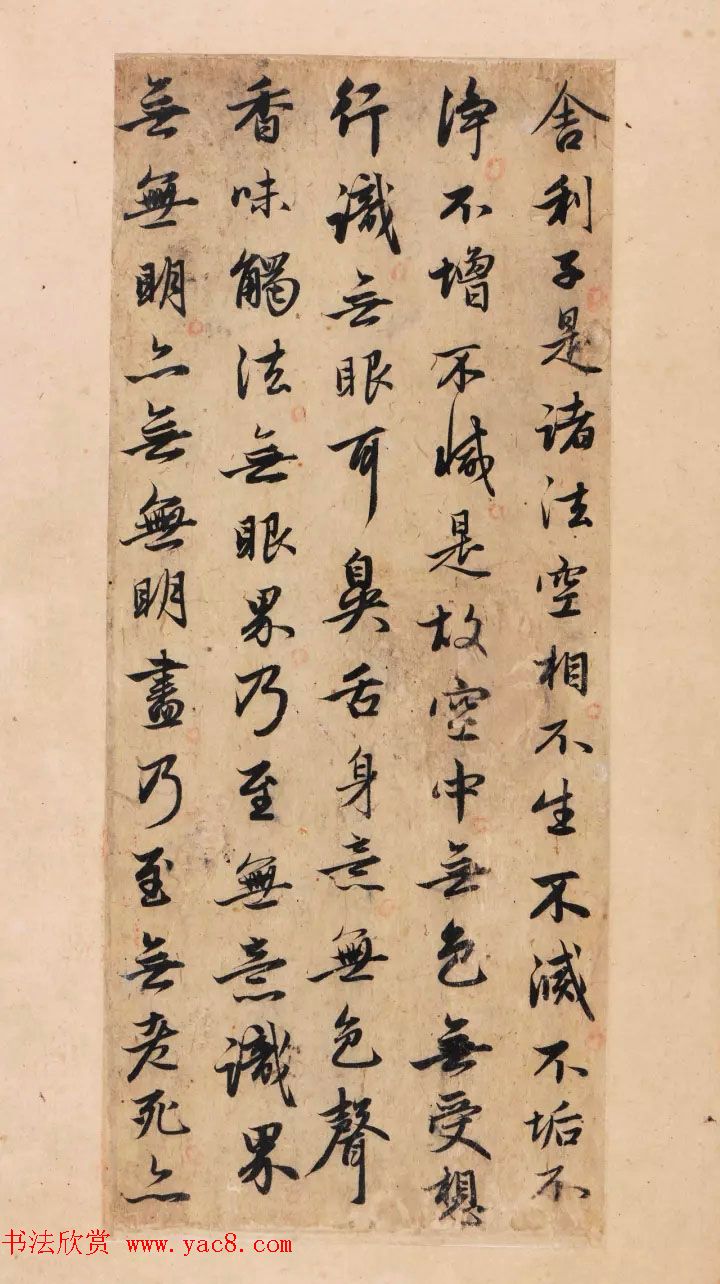 舍利子是諸法空相不生不滅不垢不
淨不增不減是故空中無色無受想
行識無眼耳鼻舌身意無色聲
香味觸法無眼界乃至無意識界
無無明亦無無明盡乃至無老死亦
书法欣赏 www.yac8.com